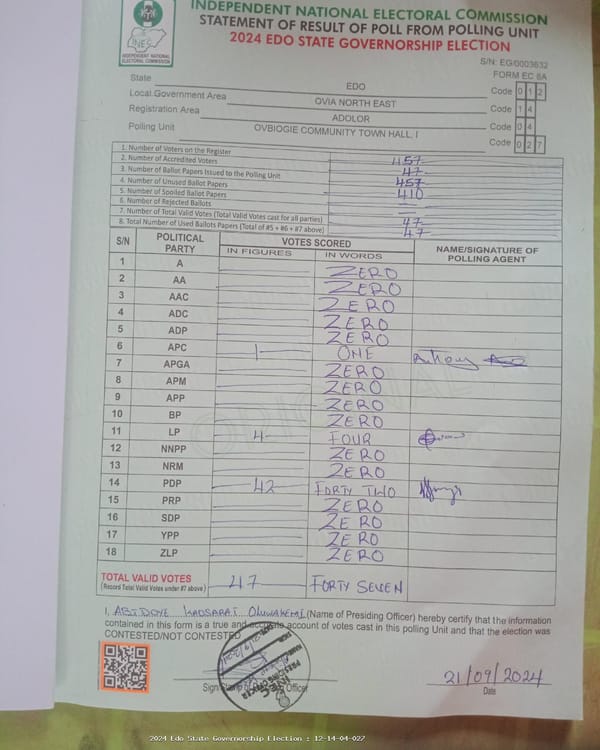 INDEPENDENT NATIONAL ELECTORAL COMMISSION
STATEMENT OF RESULT OF POLL FROM POLLING UNIT
2024 EDO STATE GOVERNORSHIP ELECTION
INEC
INDEPENDENT NATIONAL ELECTORAL COMMISSION
S/N: EG/0003632
FORM EC 8A
State EDO Code 0 1 2
Local Government Area OVIA NORTH EAST Code 1 4
Registration Area ADOLOR Code 0 4
Polling Unit OVBIOGIE COMMUNITY TOWN HALL, I Code 0 2 7
1. Number of Voters on the Register 457
2. Number of Accredited Voters 47
3. Number of Ballot Papers Issued to the Polling Unit 457
4. Number of Unused Ballot Papers 410
5. Number of Spoiled Ballot Papers —
6. Number of Rejected Ballots —
7. Number of Total Valid Votes (Total Valid Votes cast for all parties) 47
8. Total Number of Used Ballots Papers (Total of #5 + #6 + #7 above) 47
S/N POLITICAL PARTY VOTES SCORED NAME/SIGNATURE OF POLLING AGENT
IN FIGURES IN WORDS
1 A ZERO
2 AA ZERO
3 AAC ZERO
4 ADC ZERO
5 ADP ZERO
6 APC 1 ONE Anthony
7 APGA ZERO
8 APM ZERO
9 APP ZERO
10 BP ZERO
11 LP 4 FOUR
12 NNPP ZERO
13 NRM ZERO
14 PDP 42 FORTY TWO
15 PRP ZERO
16 SDP ZERO
17 YPP ZERO
18 ZLP ZERO
TOTAL VALID VOTES 47 FORTY SEVEN
(Record Total Valid Votes under #7 above)
I, ABIDOYE KAOSARAT OLUWAKEMI (Name of Presiding Officer) hereby certify that the information
contained in this form is a true and accurate account of votes cast in this polling Unit and that the election was
CONTESTED/NOT CONTESTED
21/09/2024
Date
2024 Edo State Governorship Election : 12-14-04-027